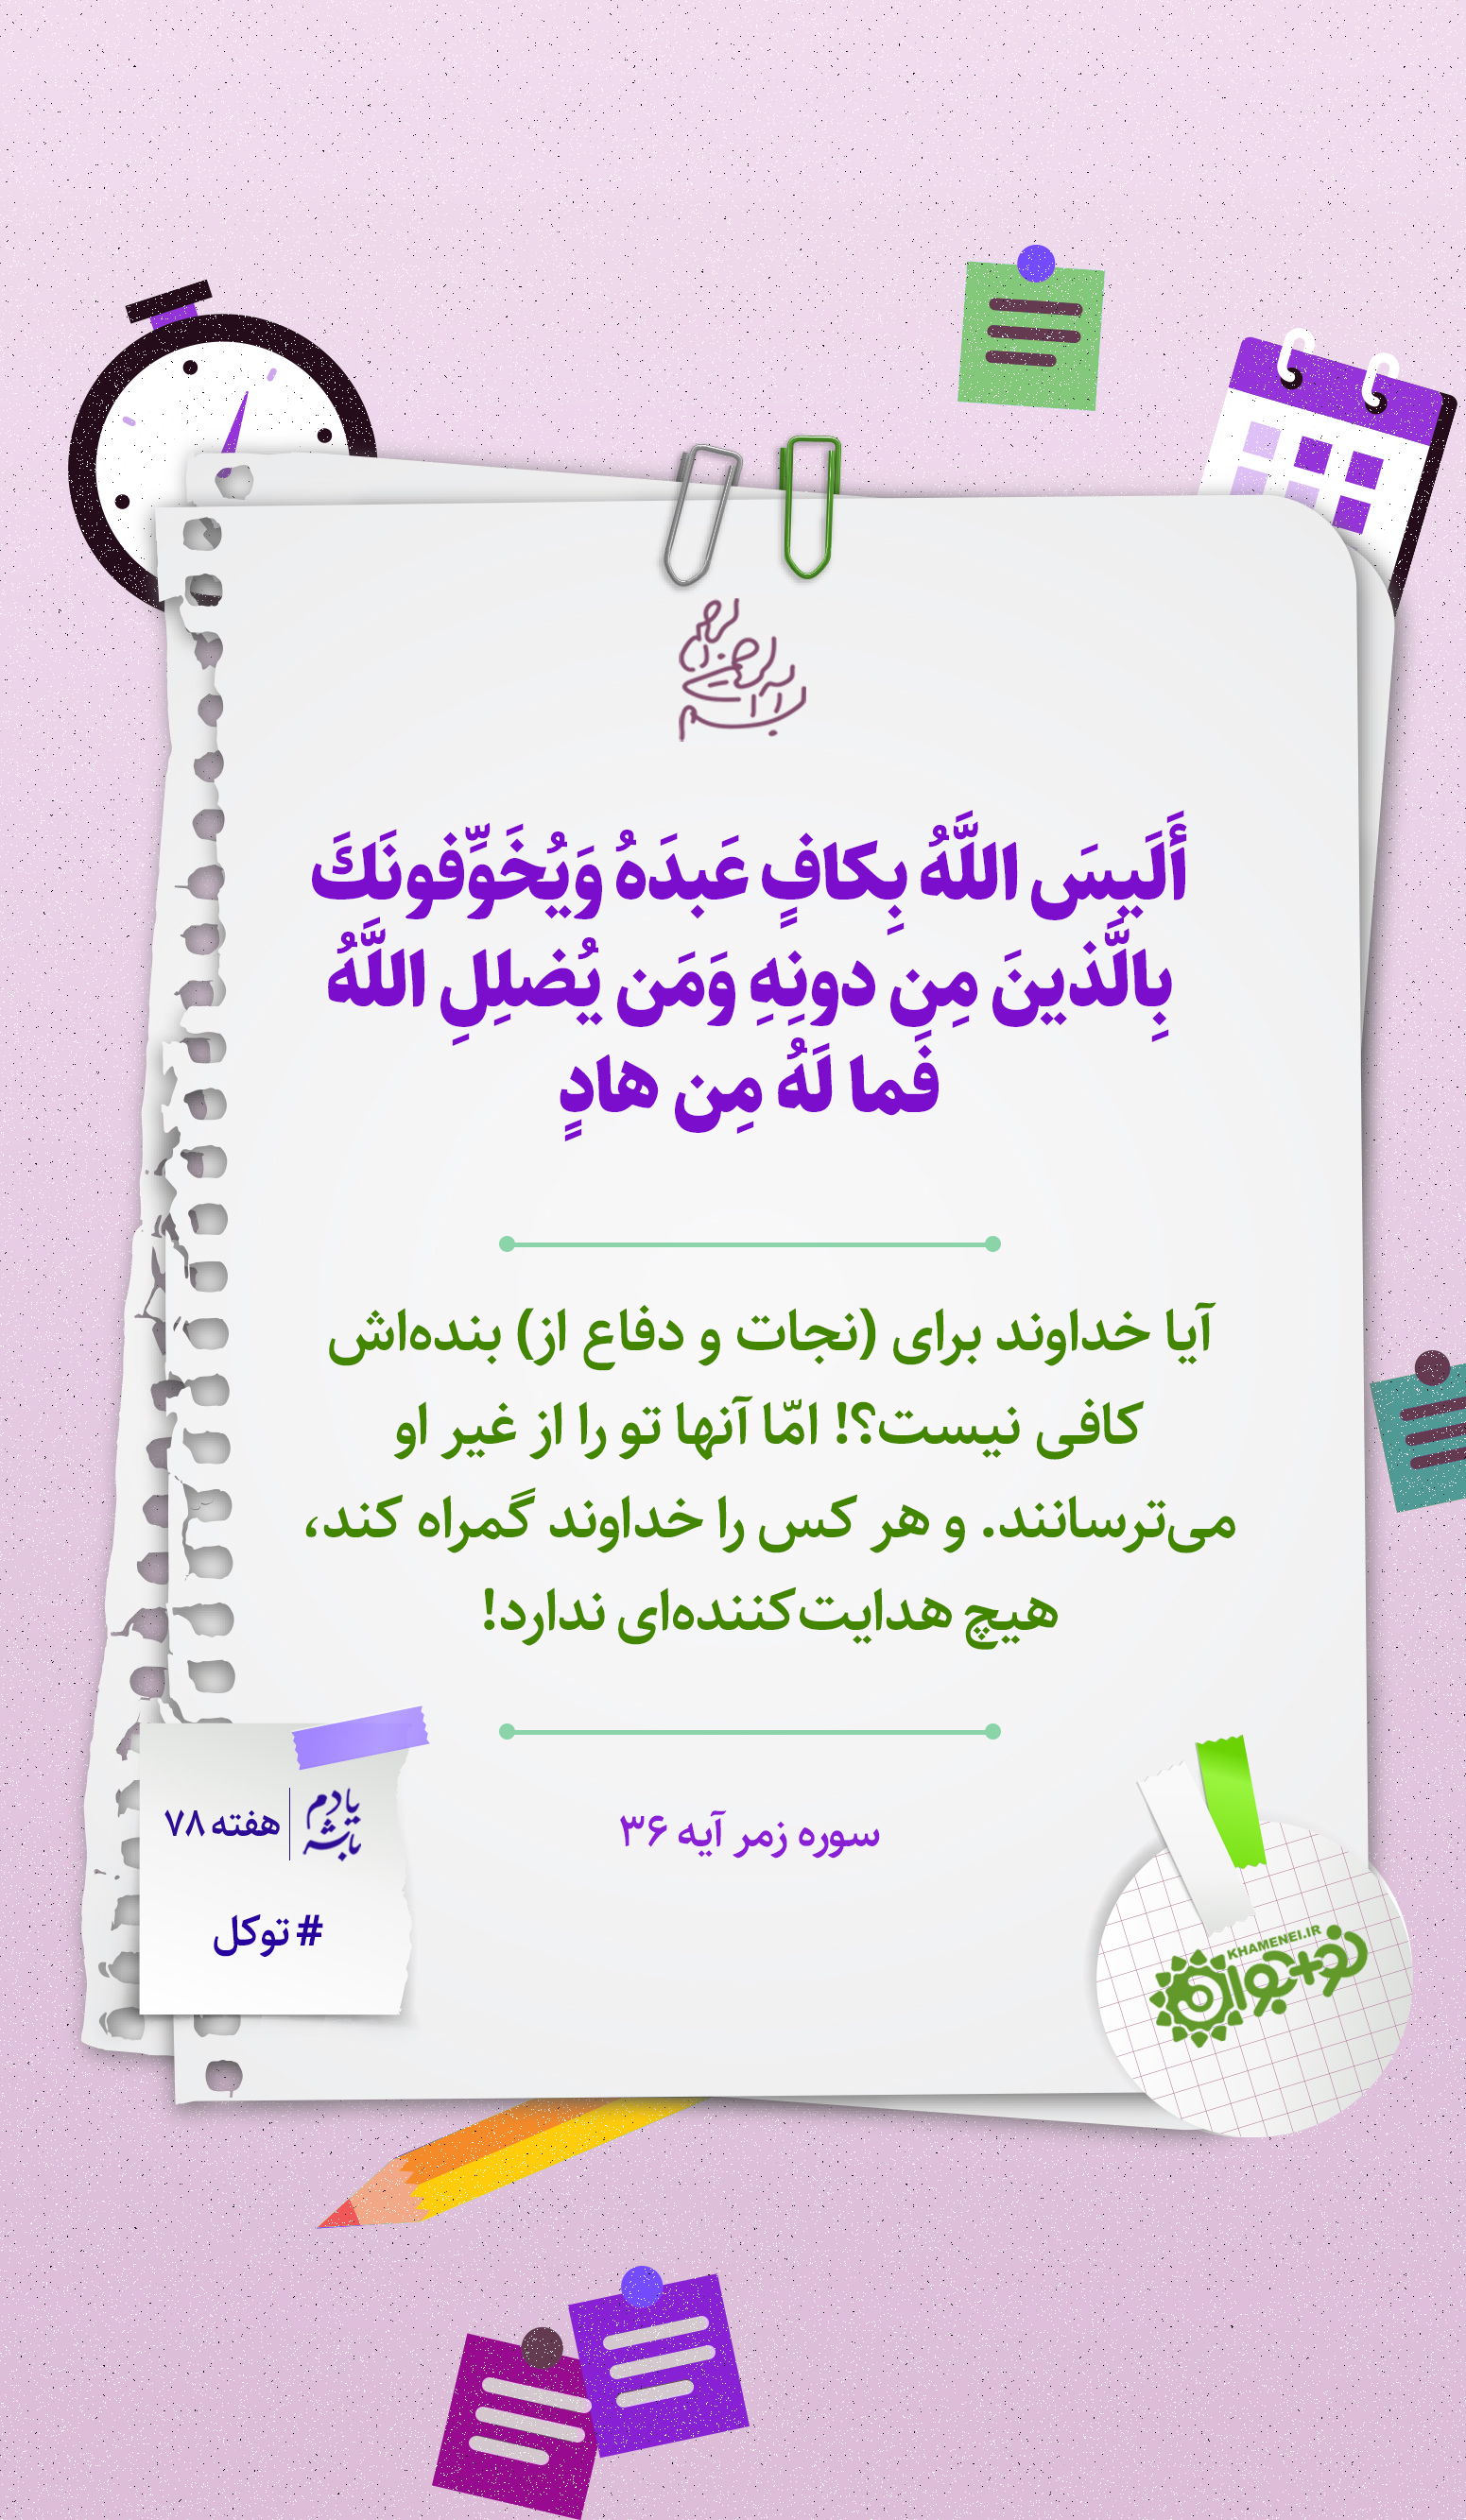 بسم الله الرحمن الرحیم
أَلَيسَ اللَّهُ بِكافٍ عَبدَهُ وَيُخَوِّفونَكَ
بِالَّذينَ مِن دونِهِ وَمَن يُضلِلِ اللَّهُ
فَما لَهُ مِن هادٍ
آیا خداوند برای (نجات و دفاع از) بنده‌اش
کافی نیست؟! امّا آنها تو را از غیر او
می‌ترسانند. و هر کس را خداوند گمراه کند،
هیچ هدایت‌کننده‌ای ندارد!
سوره زمر آیه ۳۶
یادم باشه
هفته ۷۸
# توکل
KHAMENEI.IR
نو+جوان